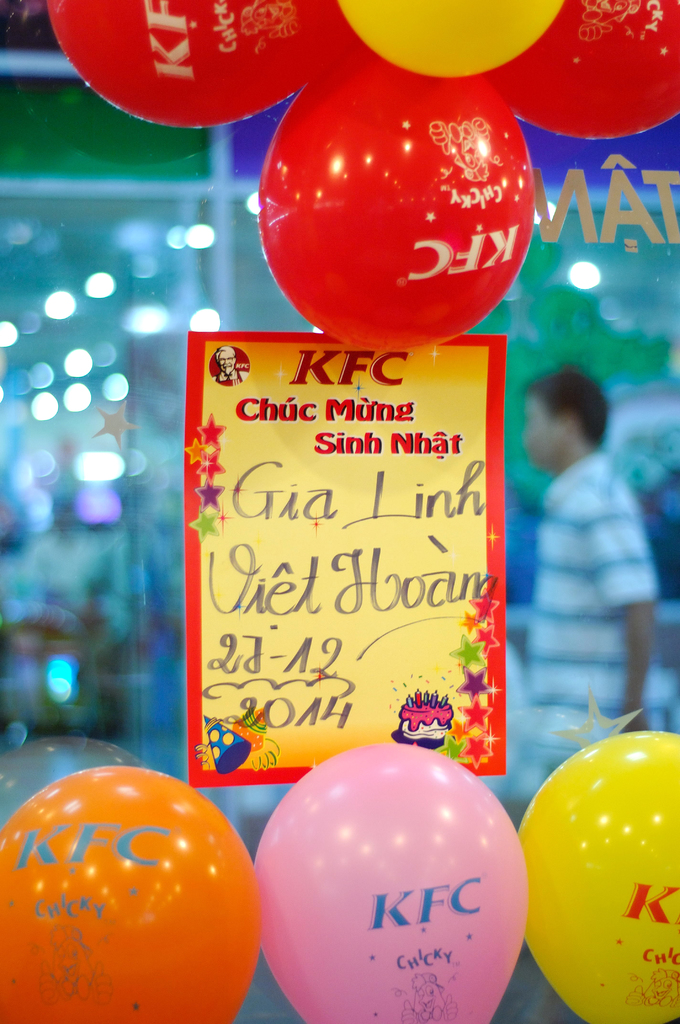 KFC
CHICKY
CHICKY
CHICKY
KFC
TẬN
KFC
KFC
Chúc Mừng
Sinh Nhật
Gia Linh
Việt Hoàng
27-12
2014
KFC
CHICKY
KFC
CHICKY
K
CHICKY